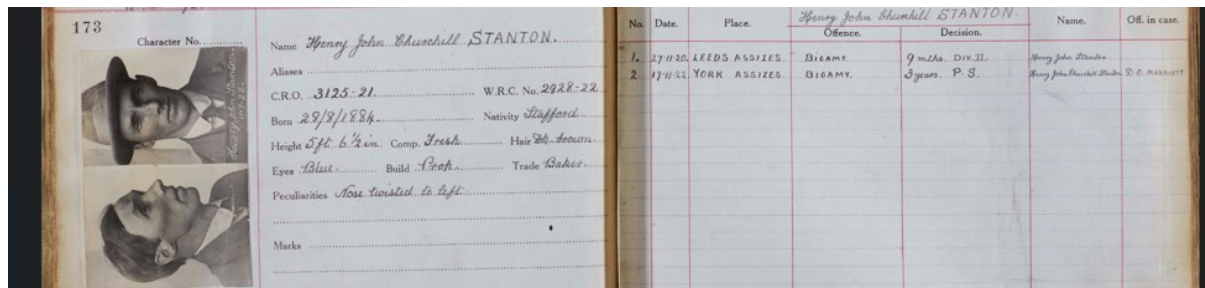 173
Character No.
Name Henry John Churchill STANTON.
Aliases
C.R.O. 3125-21. W.R.C. No. 2928-22
Born 28/8/1884. Nativity Stafford
Height 5ft 6½in. Comp. Fresh Hair Dk. brown
Eyes Blue. Build Prop. Trade Baker.
Peculiarities Nose twisted to left.
Marks
Henry John Churchill STANTON.
No. Date. Place. Offence. Decision. Name. Off. in case.
1. 27-11-20. LEEDS ASSIZES. BIGAMY. 9 mths. DIV. II. Henry John Stanton.
2. 17-11-22. YORK ASSIZES. BIGAMY. 3 years. P.S. Henry John Churchill Stanton D.O. MARRIOTT